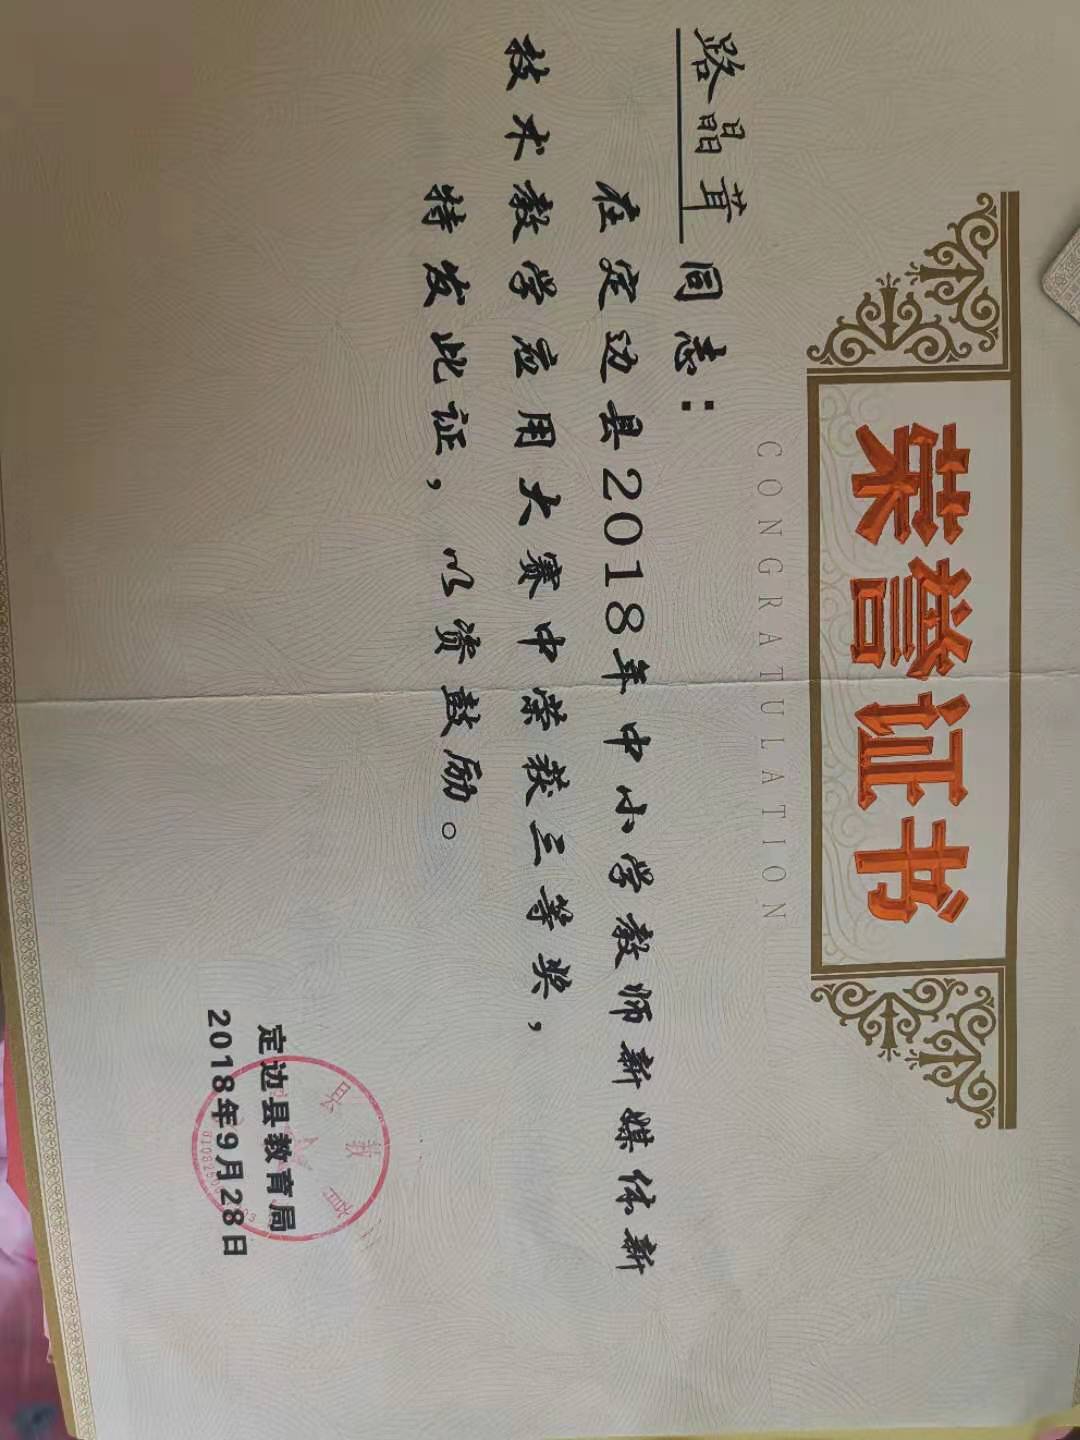 荣誉证书
CONGRATULATION
路晶茸同志：
在定边县2018年中小学教师新媒体新
技术教学应用大赛中荣获三等奖，
特发此证，以资鼓励。
定边县教育局
2018年9月28日